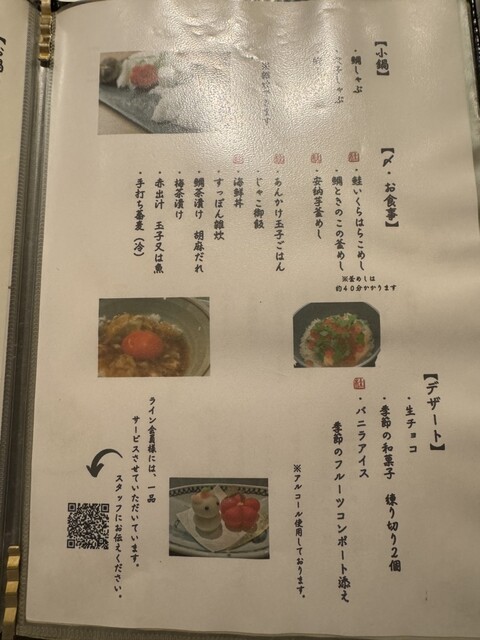 【小鍋】
・鯛しゃぶ
しゃぶ
【〆・お食事】
※釜めしは
約40分かかります
・鮭いくらはらこめし
・鯛ときのこの釜めし
・安納芋釜めし
・あんかけ玉子ごはん
・じゃこ御飯
・海鮮丼
・すっぽん雑炊
・鯛茶漬け 胡麻だれ
・梅茶漬け
・赤出汁 玉子又は魚
・手打ち蕎麦(冷)
【デザート】
・生チョコ
・季節の和菓子 練り切り2個
・バニラアイス
季節のフルーツコンポート添え
※アルコール使用しております。
ライン会員様には、一品
サービスさせていただいています。
スタッフにお伝えください。